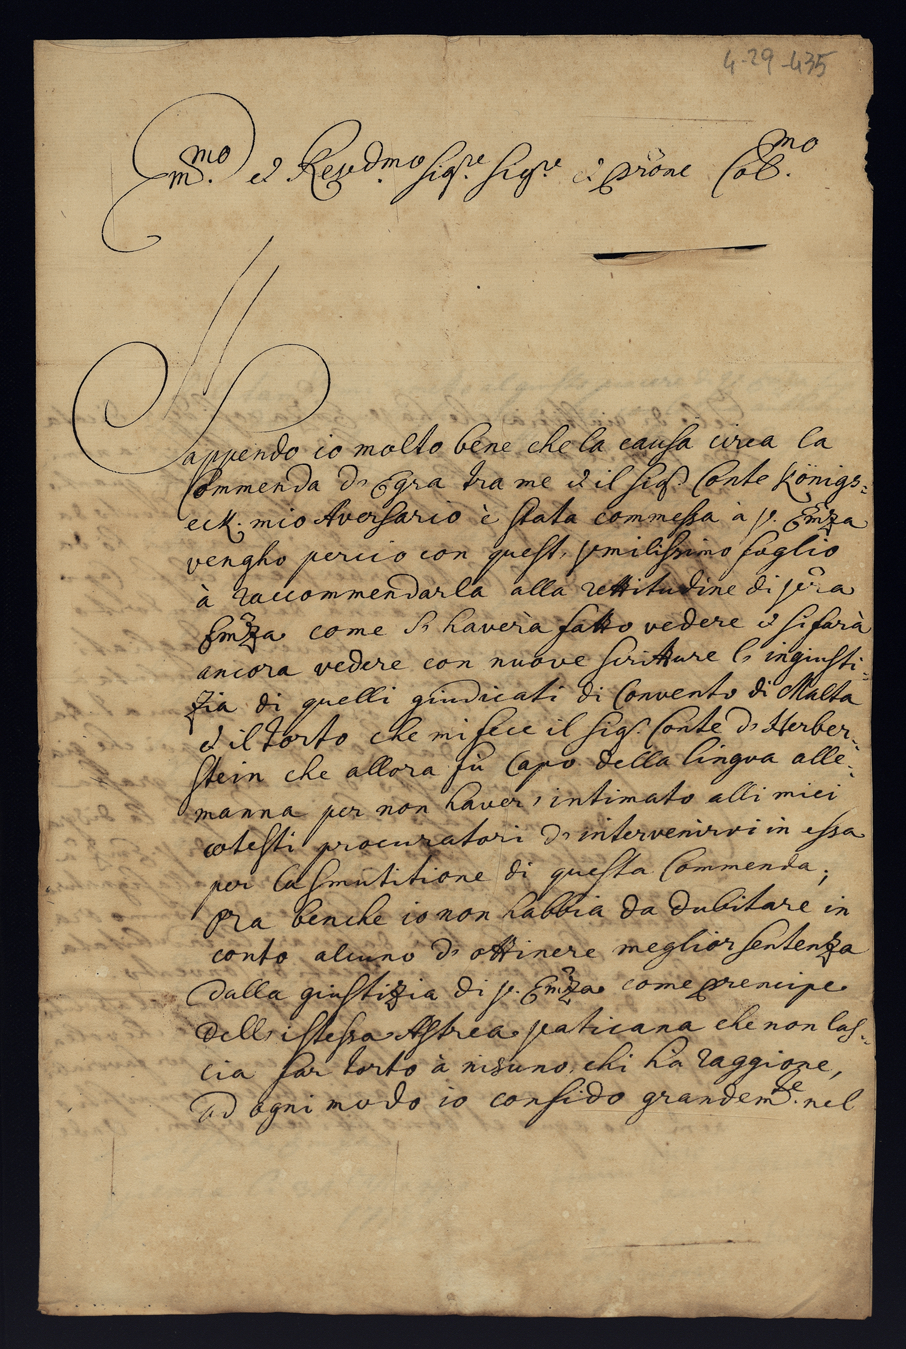 4-29-435
Em.mo et Revd.mo Sig.re Sig.re et Prone Col.mo
Sappendo io molto bene che la causa circa la
Commenda d' Egra tra me et il Sig.r Conte Königs=
eck mio Aversario è stata commessa à V. Emza
vengho percio con quest' umilissimo foglio
à raccommendarla alla rettitudine di Vra
Emza come s' haverà fatto vedere et si farà
ancora vedere con nuove scritture l' ingiusti=
zia di quelli giudicati di Convento di Malta
et il torto che mi fece il Sig.r Conte d' Herber=
stein che allora fù Capo della lingva alle=
manna per non haver' intimato alli miei
cotesti procuratori d' intervenirvi in essa
per la smutitione di questa Commenda;
Ora benche io non habbia da dubitare in
conto alcuno d' ottinere meglior sentenza
dalla giustizia di V. Emza come Prencipe
dell' istessa Astrea Vaticana che non las=
cia far torto à nisuno, chi hà raggione,
ad ogni modo io confido grandem.te nel